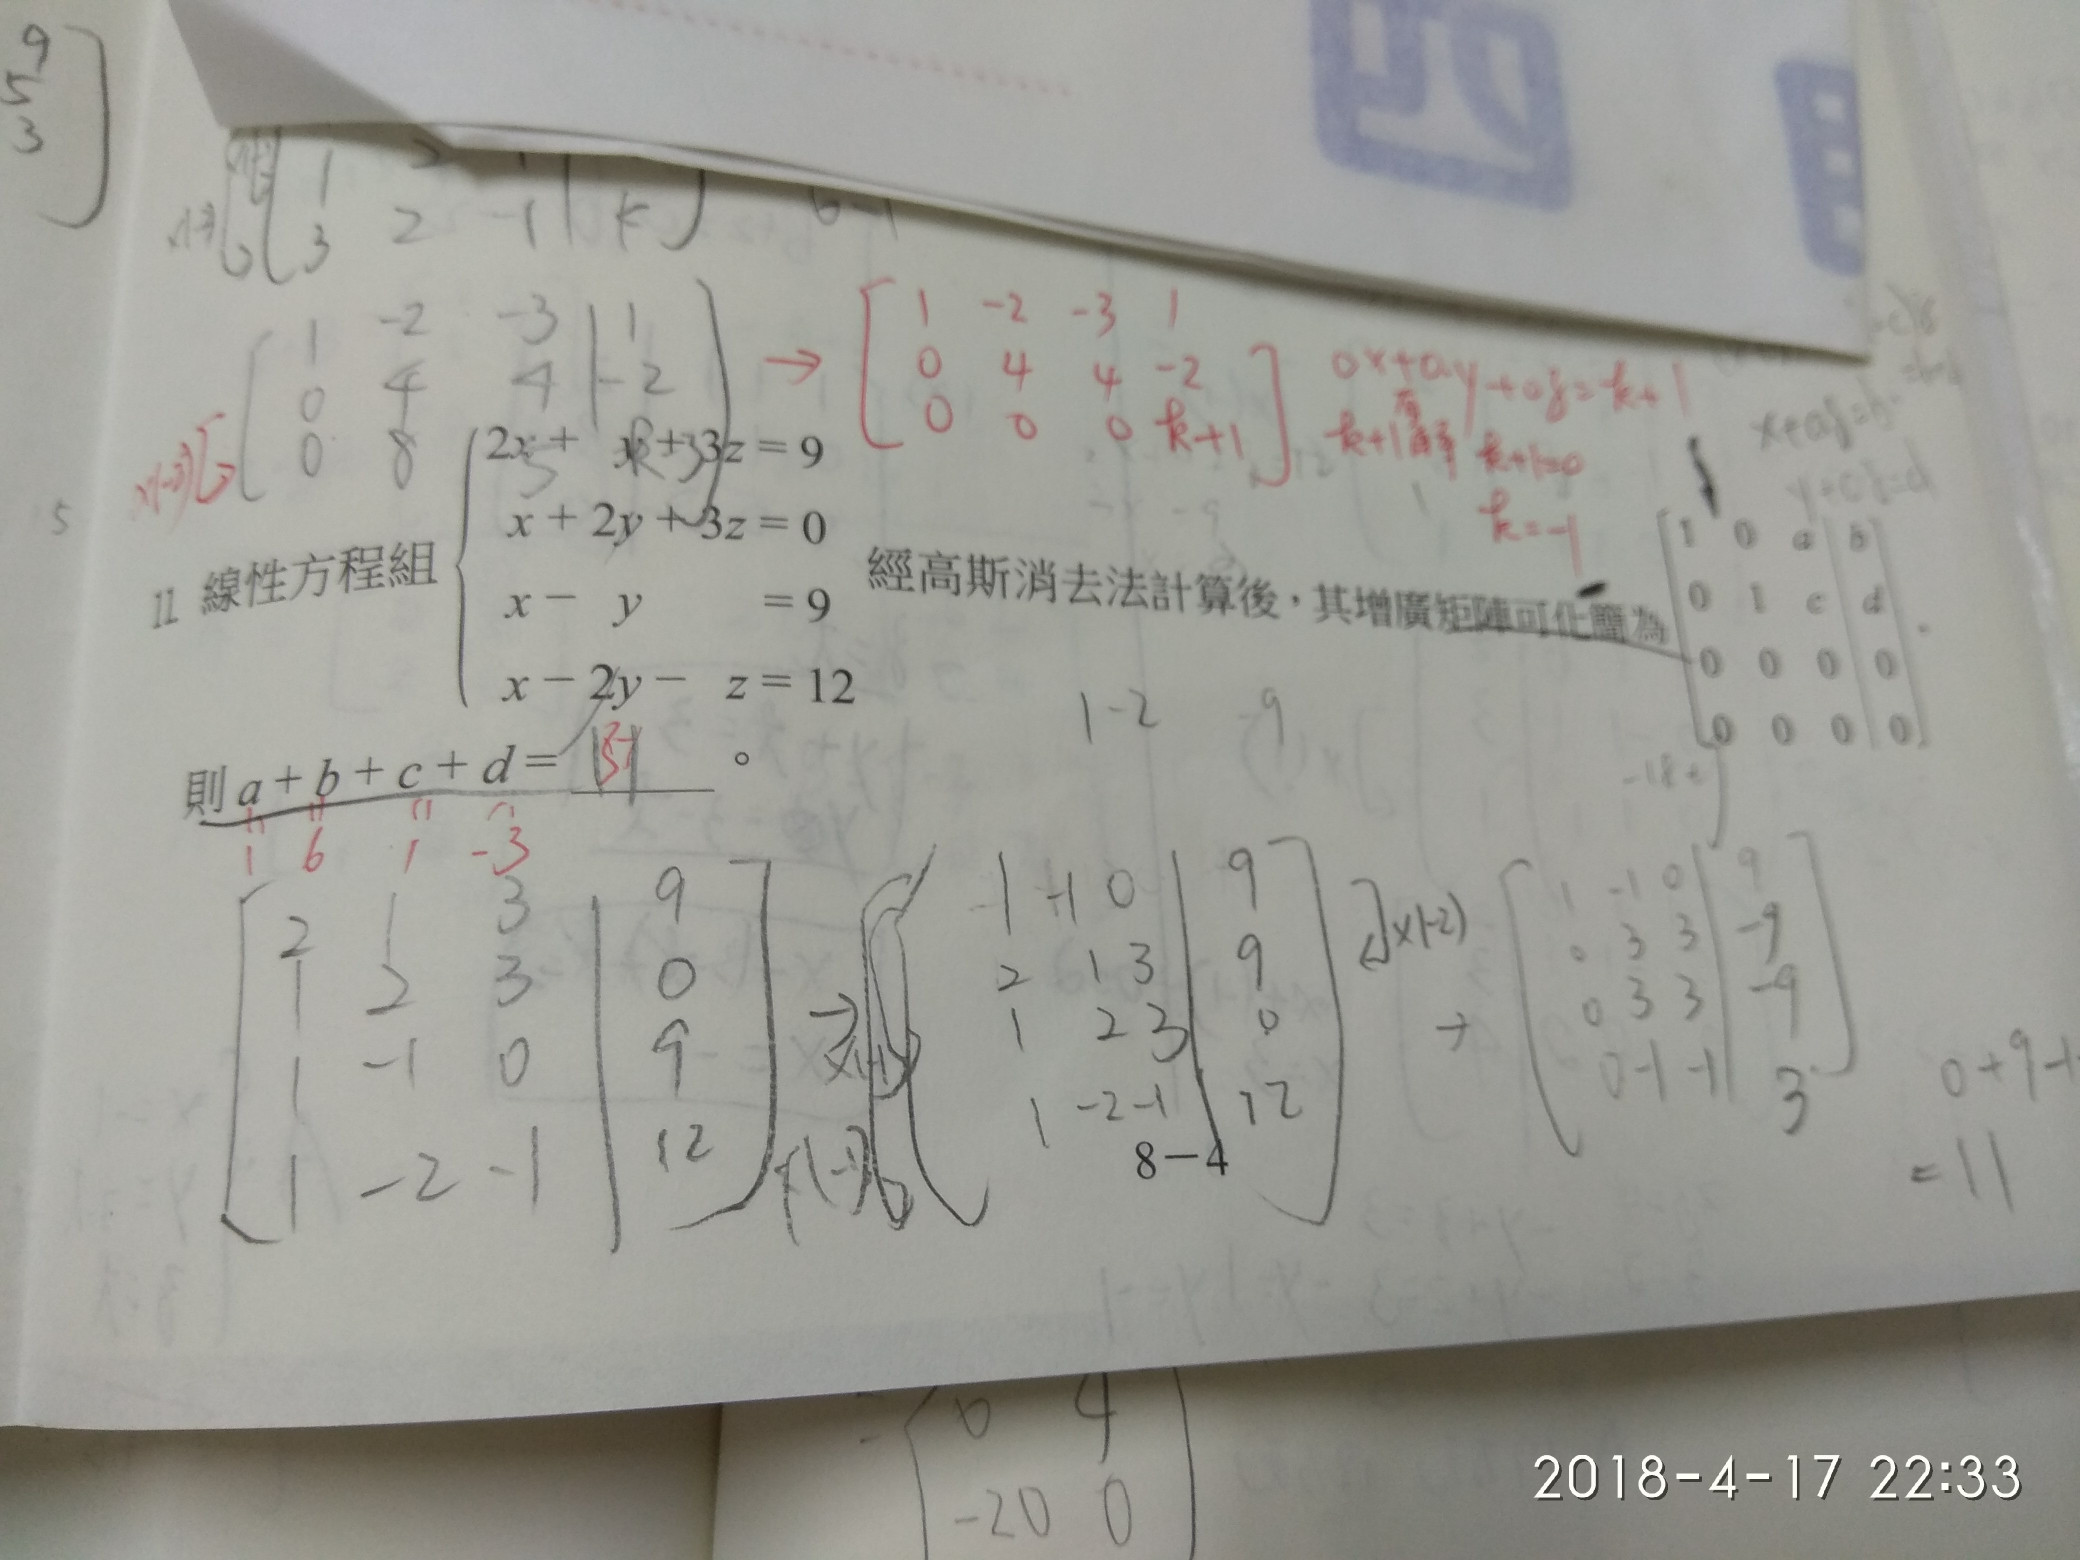 9
5
3
1 2
3 2 -1 | k
1 -2 -3 | 1
0 4 4 | -2
0 8
→
1 -2 -3 1
0 4 4 -2
0 0 0 k+1
0x+0y+0z=k+1
k+1 k+1=0
k=-1
x+az=b
y+cz=d
5
11. 線性方程組
2x+ y+3z=9
x+2y+3z=0
x- y =9
x-2y- z=12
經高斯消去法計算後,其增廣矩陣可化簡為
1 0 a b
0 1 c d
0 0 0 0
0 0 0 0
.
則a+b+c+d= 5 。
1 6 1 -3
1-2 9
2 1 3 | 9
1 2 3 | 0
1 -1 0 | 9
1 -2 -1 | 12
→
1 -1 0 | 9
2 1 3 | 9
1 2 3 | 0
1 -2 -1 | 12
x(-2)
→
1 -1 0 | 9
0 3 3 | -9
0 3 3 | -9
0 -1 -1 | 3
0+9-1
=11
8-4
0 4
-20 0
2018-4-17 22:33